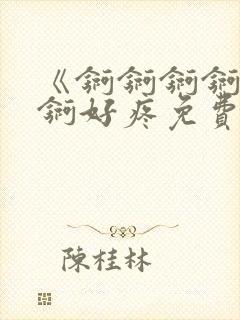 《锕锕锕锕
锕好疼免費
陳桂林